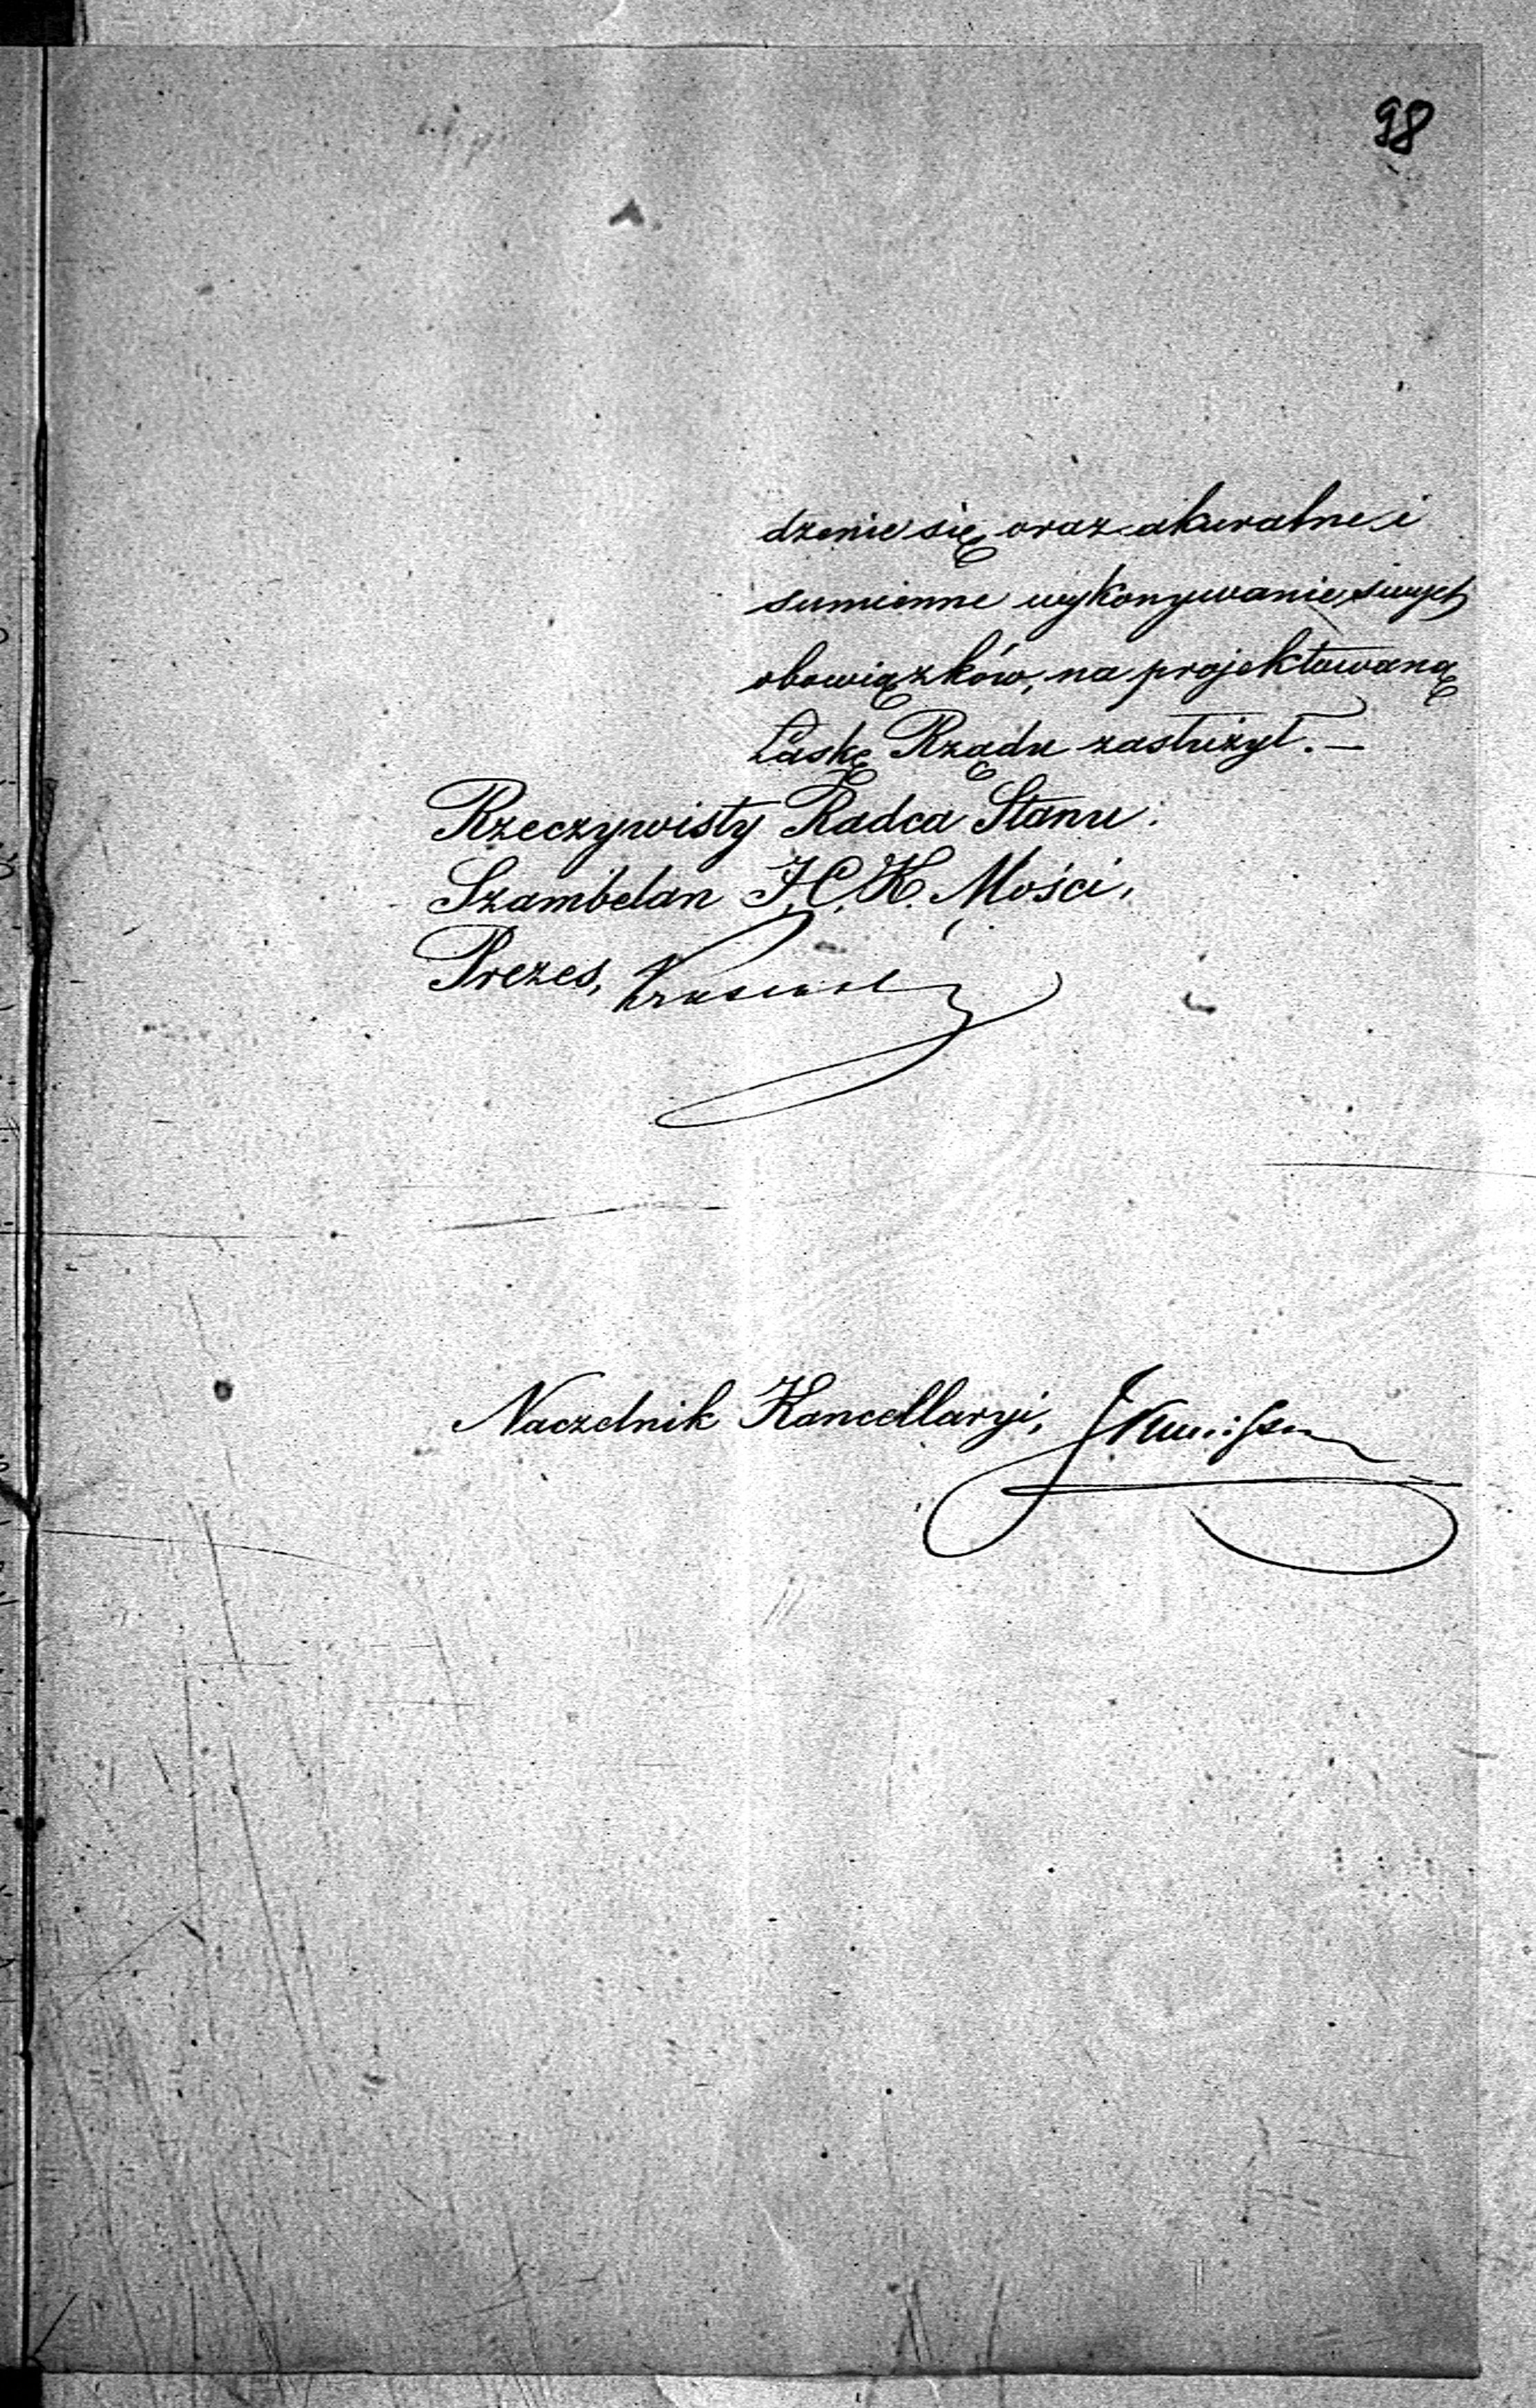 98
dzenie się oraz akuratne i
sumienne wykonywanie swych
obowiązków, na projektowaną
Łaskę Rządu zasłużył. —
Rzeczywisty Radca Stanu
Szambelan J.C.K. Mości,
Prezes,
Naczelnik Kancellaryi,